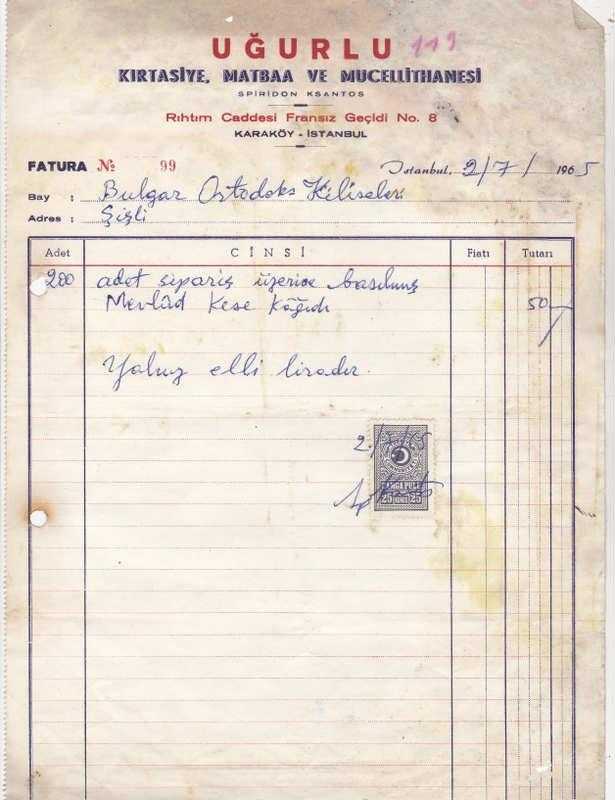 UĞURLU 119
KIRTASİYE, MATBAA VE MUCELLİTHANESİ
SPİRİDON KSANTOS
Rıhtım Caddesi Fransız Geçidi No. 8
KARAKÖY - İSTANBUL
FATURA № 99 İstanbul, 2/7/1965
Bay : Bulgar Ortodoks Kiliseleri
Adres : Şişli
Adet CİNSİ Fiatı Tutarı
200 adet sipariş üzerine basılmış
Mevlûd Kese Kâğıdı 50
Yalnız elli liradır.
2/7/65
DAMGA PULU
25 25